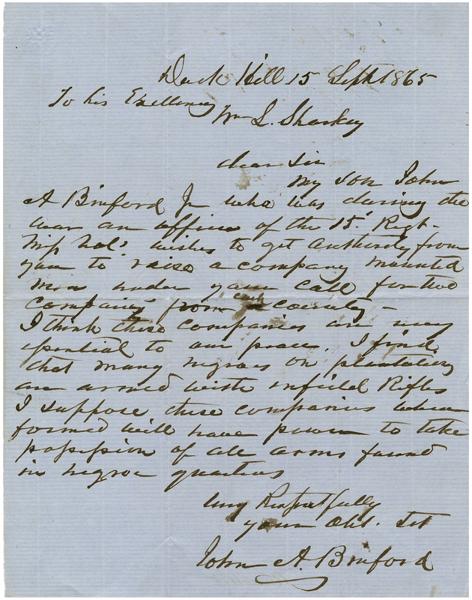 Duck Hill 15 Sept 1865
To his Excellency
Wm L. Sharkey
dear Sir
My son John
A Binford Jr who was during the
war an officer of the 15th Regt.
Miss Vols. wishes to get authority from
you to raise a company mounted
men under your call for two
companies from each county -
I think these companies are very
essential to our peace. I find
that many negroes on plantations
are armed with infield Rifles
I suppose these companies when
formed will have power to take
possession of all arms found
in negroe quarters
Very Respectfully
your Obt. Svt
John A. Binford